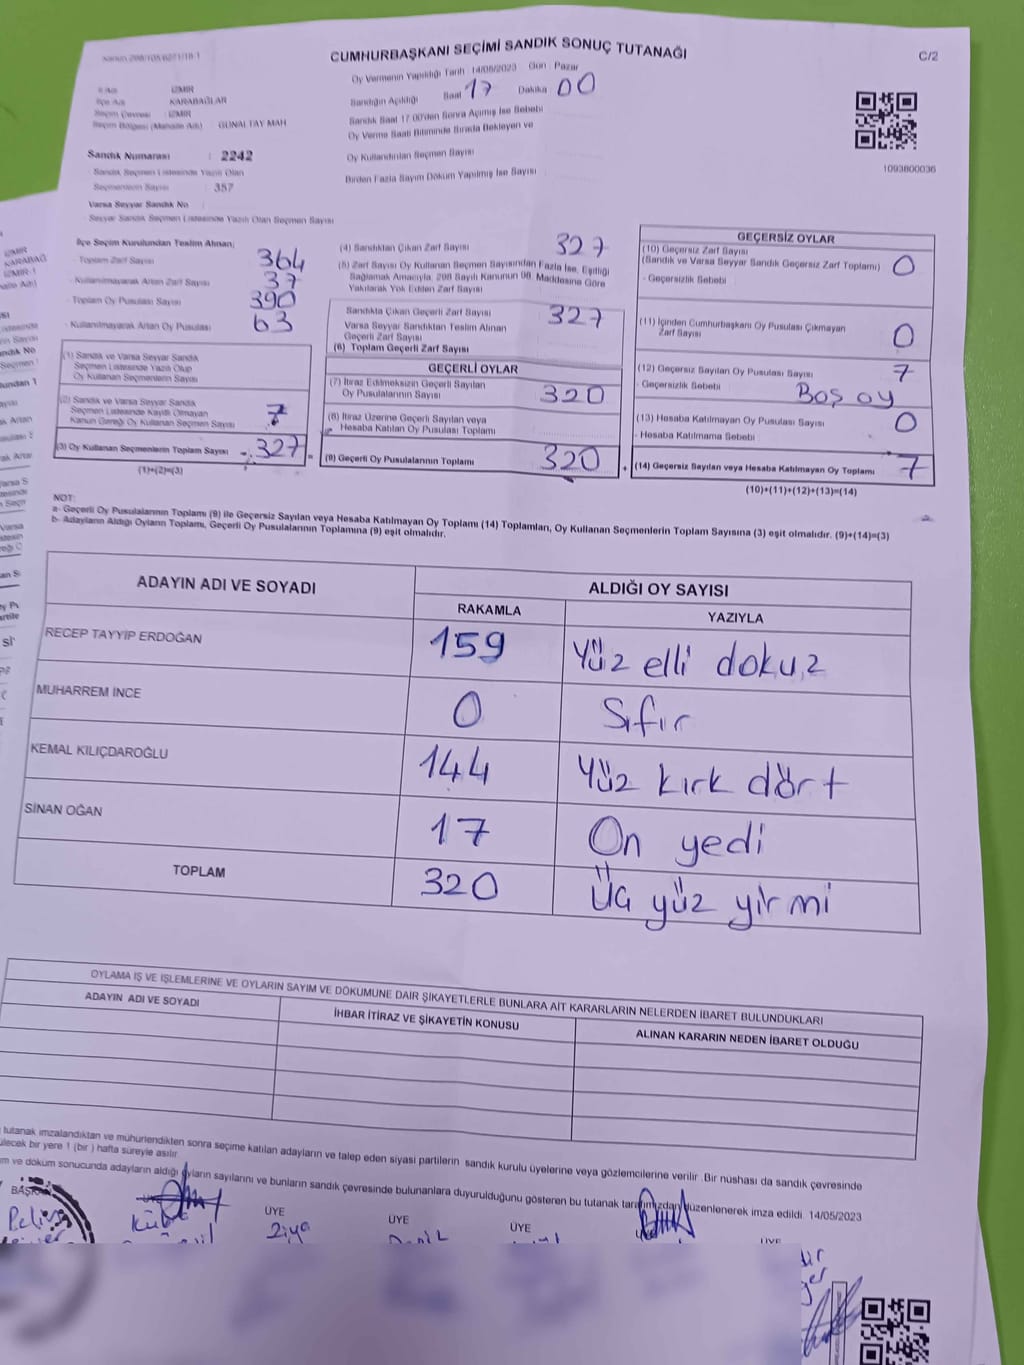 CUMHURBAŞKANI SEÇİMİ SANDIK SONUÇ TUTANAĞI
C/2
Oy Vermenin Yapıldığı Tarih : 14/05/2023 Gün : Pazar
Sandığın Açıldığı Saat 17 Dakika 00
Sandık Saat 17.00'den Sonra Açımış İse Sebebi
Oy Verme Saati Bitiminde Sırada Bekleyen ve
Oy Kullandırılan Seçmen Sayısı
Birden Fazla Sayım Döküm Yapılmış İse Sayısı
1093800036
İl Adı : İZMİR
İlçe Adı : KARABAĞLAR
Seçim Çevresi : İZMİR
Seçim Bölgesi (Mahalle Adı) : GÜNALTAY MAH
Sandık Numarası : 2242
Sandık Seçmen Listesinde Yazılı Olan
Seçmenlerin Sayısı : 357
Varsa Seyyar Sandık No
Seyyar Sandık Seçmen Listesinde Yazılı Olan Seçmen Sayısı
İlçe Seçim Kurulundan Teslim Alınan;
- Toplam Zarf Sayısı 364
- Kullanılmayarak Artan Zarf Sayısı 37
- Toplam Oy Pusulası Sayısı 390
- Kullanılmayarak Artan Oy Pusulası 63
(1) Sandık ve Varsa Seyyar Sandık
Seçmen Listesinde Yazılı Olup
Oy Kullanan Seçmenlerin Sayısı
(2) Sandık ve Varsa Seyyar Sandık
Seçmen Listesinde Kayıtlı Olmayan
Kanun Gereği Oy Kullanan Seçmen Sayısı 7
(3) Oy Kullanan Seçmenlerin Toplam Sayısı 327
(1)+(2)=(3)
(4) Sandıktan Çıkan Zarf Sayısı 327
(5) Zarf Sayısı Oy Kullanan Seçmen Sayısından Fazla İse, Eşitliği
Sağlamak Amacıyla, 298 Sayılı Kanunun 98. Maddesine Göre
Yakılarak Yok Edilen Zarf Sayısı
Sandıkta Çıkan Geçerli Zarf Sayısı 327
Varsa Seyyar Sandıktan Teslim Alınan
Geçerli Zarf Sayısı
(6) Toplam Geçerli Zarf Sayısı
GEÇERLİ OYLAR
(7) İtiraz Edilmeksizin Geçerli Sayılan
Oy Pusulalarının Sayısı 320
(8) İtiraz Üzerine Geçerli Sayılan veya
Hesaba Katılan Oy Pusulası Toplamı
(9) Geçerli Oy Pusulalarının Toplamı 320
GEÇERSİZ OYLAR
(10) Geçersiz Zarf Sayısı
(Sandık ve Varsa Seyyar Sandık Geçersiz Zarf Toplamı) 0
- Geçersizlik Sebebi
(11) İçinden Cumhurbaşkanı Oy Pusulası Çıkmayan
Zarf Sayısı 0
(12) Geçersiz Sayılan Oy Pusulası Sayısı 7
- Geçersizlik Sebebi Boş oy
(13) Hesaba Katılmayan Oy Pusulası Sayısı 0
- Hesaba Katılmama Sebebi
(14) Geçersiz Sayılan veya Hesaba Katılmayan Oy Toplamı 7
(10)+(11)+(12)+(13)=(14)
NOT:
a- Geçerli Oy Pusulalarının Toplamı (9) ile Geçersiz Sayılan veya Hesaba Katılmayan Oy Toplamı (14) Toplamları, Oy Kullanan Seçmenlerin Toplam Sayısına (3) eşit olmalıdır. (9)+(14)=(3)
b- Adayların Aldığı Oyların Toplamı, Geçerli Oy Pusulalarının Toplamına (9) eşit olmalıdır.
ADAYIN ADI VE SOYADI ALDIĞI OY SAYISI
RAKAMLA YAZIYLA
RECEP TAYYİP ERDOĞAN 159 Yüz elli dokuz
MUHARREM İNCE 0 Sıfır
KEMAL KILIÇDAROĞLU 144 Yüz kırk dört
SİNAN OĞAN 17 On yedi
TOPLAM 320 Üç yüz yirmi
OYLAMA İŞ VE İŞLEMLERİNE VE OYLARIN SAYIM VE DÖKÜMÜNE DAİR ŞİKAYETLERLE BUNLARA AİT KARARLARIN NELERDEN İBARET BULUNDUKLARI
ADAYIN ADI VE SOYADI İHBAR İTİRAZ VE ŞİKAYETİN KONUSU ALINAN KARARIN NEDEN İBARET OLDUĞU
tutanak imzalandıktan ve mühürlendikten sonra seçime katılan adayların ve talep eden siyasi partilerin sandık kurulu üyelerine veya gözlemcilerine verilir. Bir nüshası da sandık çevresinde
bir yere 1 (bir) hafta süreyle asılır.
ve döküm sonucunda adayların aldığı oyların sayılarını ve bunların sandık çevresinde bulunanlara duyurulduğunu gösteren bu tutanak tarafımızdan düzenlenerek imza edildi. 14/05/2023
ÜYE ÜYE ÜYE ÜYE
Ziya